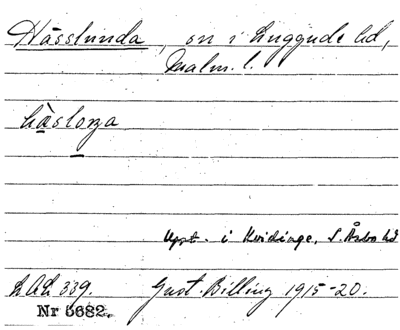 Hässlunda, sn i Luggude hd,
Malm. l.
hàsloŋa
Uppt. i Kvidinge, S. Åsbo hd
LAL 339. Gust. Billing 1915-20.
Nr 5682.